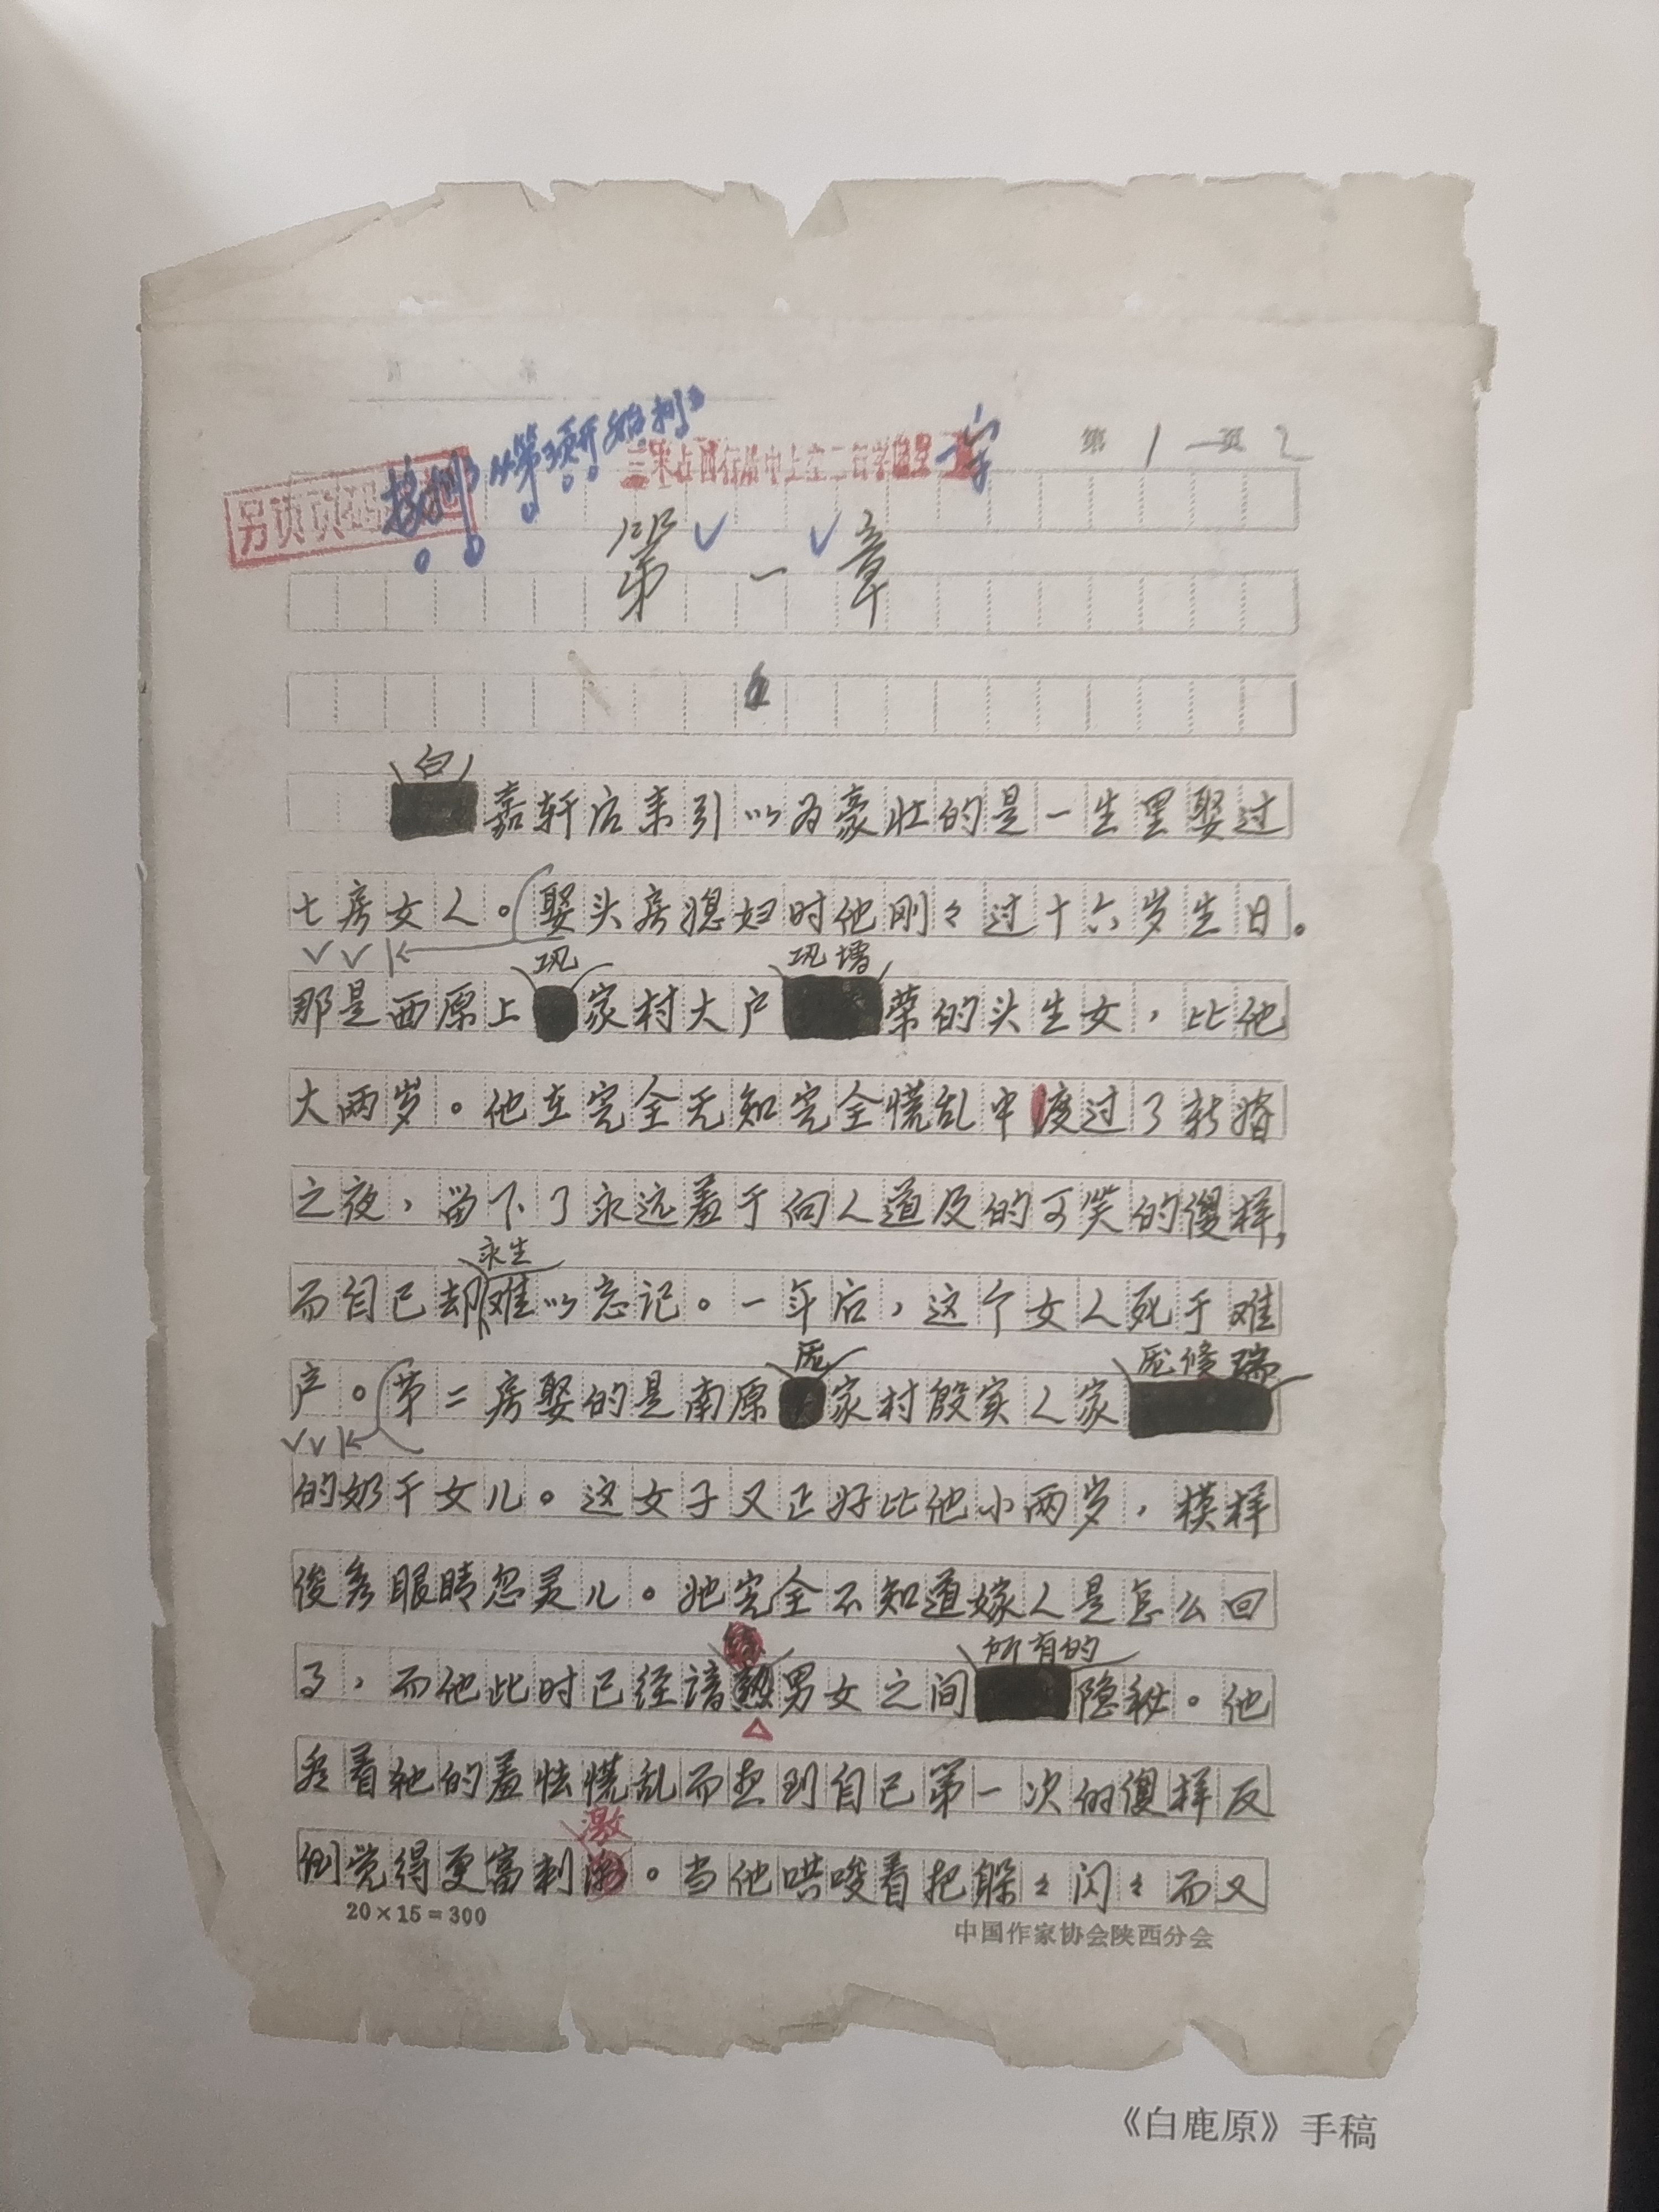 第1页 2
接排 从第3页开始排
另页页码
三宋占四行居中上空二行字间空一字
第一章
白
嘉轩后来引以为豪壮的是一生里娶过
七房女人。娶头房媳妇时他刚々过十六岁生日。
巩 巩增
那是西原上家村大户荣的头生女，比他
大两岁。他在完全无知完全慌乱中度过了新婚
之夜，留下了永远羞于向人道及的可笑的傻样，
永生
而自己却难以忘记。一年后，这个女人死于难
庞 庞修瑞
产。第二房娶的是南原家村殷实人家
的奶干女儿。这女子又正好比他小两岁，模样
俊秀眼睛忽灵儿。她完全不知道嫁人是怎么回
所有的
事，而他此时已经谙熟男女之间隐秘。他
看着她的羞怯慌乱而想到自己第一次的傻样反
激
倒觉得更富刺。当他哄唆着把躲々闪々而又
20×15=300
中国作家协会陕西分会
《白鹿原》手稿